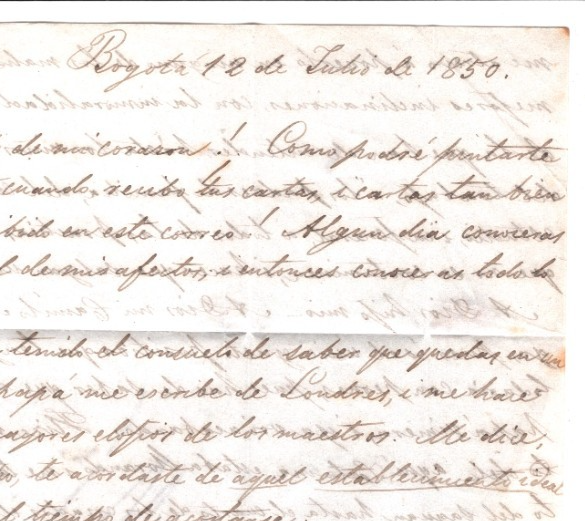 Bogotá 12 de Julio de 1850.
de mi corazon! Como podré pintarte
cuando recibo tus cartas, i cartas tan bien
bido en este correo! Algun dia conoceras
de mis afectos, i entonces conoceras todo lo
tenido el consuelo de saber que quedas en un
papá me escribe de Londres, i me hace
mayores elojios de los maestros. Me dice,
te acordaste de aquel establecimiento ideal
tiempo de acostarse